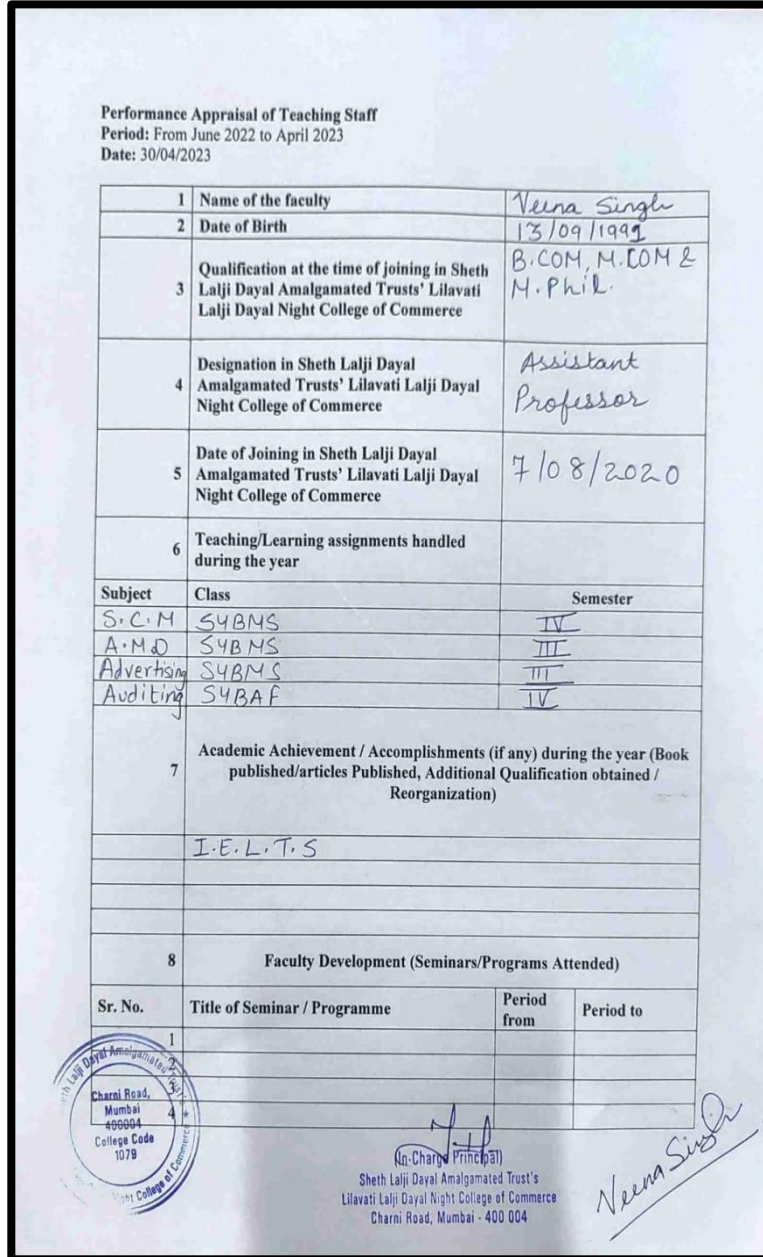 Performance Appraisal of Teaching Staff
Period: From June 2022 to April 2023
Date: 30/04/2023
1 Name of the faculty Veena Singh
2 Date of Birth 13/09/1991
3 Qualification at the time of joining in Sheth
Lalji Dayal Amalgamated Trusts' Lilavati
Lalji Dayal Night College of Commerce
B.COM, M.COM &
M.Phil.
4 Designation in Sheth Lalji Dayal
Amalgamated Trusts' Lilavati Lalji Dayal
Night College of Commerce
Assistant
Professor
5 Date of Joining in Sheth Lalji Dayal
Amalgamated Trusts' Lilavati Lalji Dayal
Night College of Commerce
7/08/2020
6 Teaching/Learning assignments handled
during the year
Subject Class Semester
S.C.M SYBMS IV
A.M.D SYBMS III
Advertising SYBMS III
Auditing SYBAF IV
7 Academic Achievement / Accomplishments (if any) during the year (Book
published/articles Published, Additional Qualification obtained /
Reorganization)
I.E.L.T.S
8 Faculty Development (Seminars/Programs Attended)
Sr. No. Title of Seminar / Programme Period
from Period to
1
2
3
4
Lalji Dayal Amalgamated Trust's
Night College of Commerce
Charni Road,
Mumbai
400004
College Code
1079
(In-Charge Principal)
Sheth Lalji Dayal Amalgamated Trust's
Lilavati Lalji Dayal Night College of Commerce
Charni Road, Mumbai - 400 004
Veena Singh